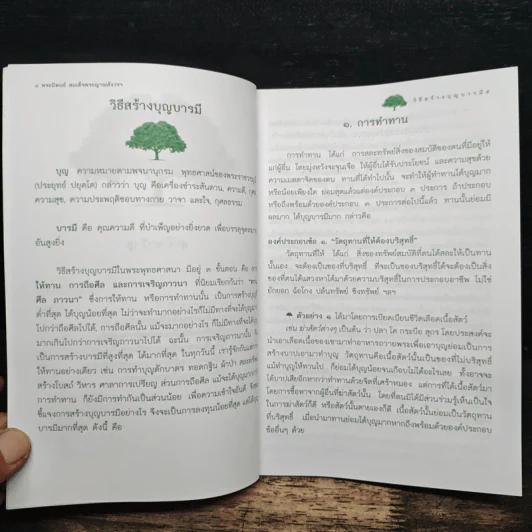 ๔ พระนิพนธ์ สมเด็จพระญาณสังวรฯ
วิธีสร้างบุญบารมี
บุญ ความหมายตามพจนานุกรม พุทธศาสน์ของพระราชวรมุนี
(ประยุทธ์ ปยุตโต) กล่าวว่า บุญ คือเครื่องชำระสันดาน, ความดี, กุศล,
ความสุข, ความประพฤติชอบทางกาย วาจา และใจ, กุศลธรรม
บารมี คือ คุณความดี ที่บำเพ็ญอย่างยิ่งยวด เพื่อบรรลุจุดหมาย
อันสูงยิ่ง
วิธีสร้างบุญบารมีในพระพุทธศาสนา มีอยู่ ๓ ขั้นตอน คือ การ
ให้ทาน การถือศีล และการเจริญภาวนา ที่นิยมเรียกกันว่า "ทาน
ศีล ภาวนา" ซึ่งการให้ทาน หรือการทำทานนั้น เป็นการสร้างบุญ
ต่ำที่สุด ได้บุญน้อยที่สุด ไม่ว่าจะทำมากอย่างไรก็ไม่มีทางที่จะได้
ไปกว่าถือศีลไปได้, การถือศีลนั้น แม้จะมากอย่างไร ก็ไม่มีทางที่จะได้
มากเกินไปกว่าการเจริญภาวนาไปได้ ฉะนั้น การเจริญภาวนานั้น จึง
เป็นการสร้างบารมีที่สูงที่สุด ได้มากที่สุด ในทุกวันนี้ เรารู้จักกันแต่การ
ให้ทานอย่างเดียว เช่น การทำบุญตักบาตร ทอดกฐิน ผ้าป่า
สร้างโบสถ์ วิหาร ศาลาการเปรียญ ส่วนการถือศีล แม้จะได้บุญมากกว่า
การทำทาน ก็ยังมีการทำกันเป็นส่วนน้อย เพื่อความเข้าใจอันดี จึงขอ
ชี้แจงการสร้างบุญบารมีอย่างไร จึงจะเป็นการลงทุนน้อยที่สุด แต่ได้บุญ
บารมีมากที่สุด ดังนี้ คือ
วิธีสร้างบุญบารมี ๕
๑. การทำทาน
การทำทาน ได้แก่ การสละทรัพย์สิ่งของสมบัติของตนที่มีอยู่ให้
แก่ผู้อื่น โดยมุ่งหวังจะจุนเจือ ให้ผู้อื่นได้รับประโยชน์ และความสุขด้วย
ความเมตตาจิตของตน ทานที่ได้ทำไปนั้น จะทำให้ผู้ทำทานได้บุญมาก
หรือน้อยเพียงใด ย่อมสุดแล้วแต่องค์ประกอบ ๓ ประการ ถ้าประกอบ
หรือถึงพร้อมด้วยองค์ประกอบ ๓ ประการต่อไปนี้แล้ว ทานนั้นย่อมมี
ผลมาก ได้บุญบารมีมาก กล่าวคือ
องค์ประกอบข้อ ๑. "วัตถุทานที่ให้ต้องบริสุทธิ์"
วัตถุทานที่ให้ ได้แก่ สิ่งของทรัพย์สมบัติที่ตนได้สละให้เป็นทาน
นั้นเอง จะต้องเป็นของที่บริสุทธิ์ ที่จะเป็นของบริสุทธิ์ได้จะต้องเป็นสิ่ง
ของที่ตนได้แสวงหาได้มาด้วยความบริสุทธิ์ในการประกอบอาชีพ ไม่ใช่
ยักยอก ฉ้อโกง ปล้นทรัพย์ ชิงทรัพย์ ฯลฯ
ตัวอย่าง ๑ ได้มาโดยการเบียดเบียนชีวิตเลือดเนื้อสัตว์
เช่น ฆ่าสัตว์ต่างๆ เป็นต้น ว่า ปลา โค กระบือ สุกร โดยประสงค์จะ
นำเอาเลือดเนื้อของเขามาทำอาหารถวายพระเพื่อเอาบุญย่อมเป็นการ
สร้างบาปเอามาทำบุญ วัตถุทานคือเนื้อสัตว์นั้นเป็นของที่ไม่บริสุทธิ์
แม้ทำบุญให้ทานไป ก็ย่อมได้บุญน้อยจนเกือบไม่ได้อะไรเลย ทั้งอาจจะ
ได้บาปเสียอีกหากว่าทำทานด้วยจิตที่เศร้าหมอง แต่การที่ได้เนื้อสัตว์มา
โดยการซื้อหาจากผู้อื่นที่ฆ่าสัตว์นั้น โดยที่ตนมิได้มีส่วนร่วมรู้เห็นเป็นใจ
ในการฆ่าสัตว์ก็ดี หรือสัตว์นั้นตายเองก็ดี เนื้อสัตว์นั้นย่อมเป็นวัตถุทาน
ที่บริสุทธิ์ เมื่อนำมาทำทานย่อมได้บุญมากหากถึงพร้อมด้วยองค์ประกอบ
ข้ออื่นๆ ด้วย